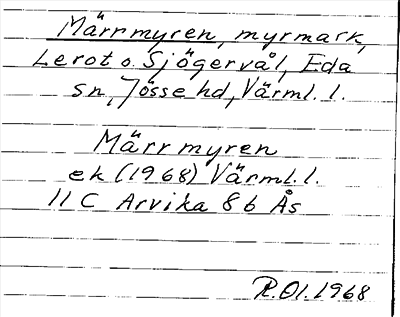 Märrmyren, myrmark,
Lerot o. Sjögervål, Eda
sn, Jösse hd, Värml. l.
Märrmyren
ek (1968) Värml. l.
11 C Arvika 8 b Ås
R.Ol. 1968